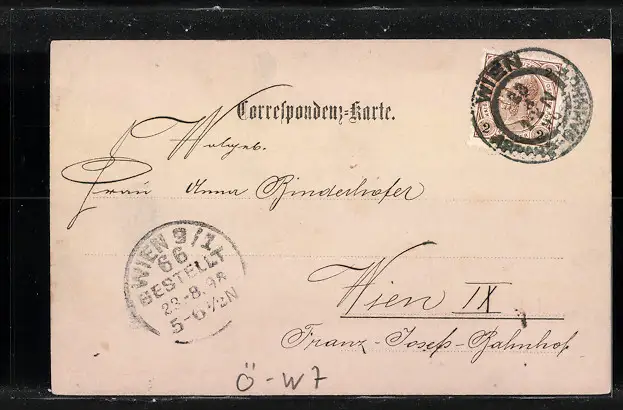 Correspondenz-Karte.
WIEN
2 2
Wolgeb.
Frau Anna Binderhofer
WIEN 9/1
66
BESTELLT
23.8.98
5-6½N
Wien IX
Franz-Josefs-Bahnhof
Ö-W7